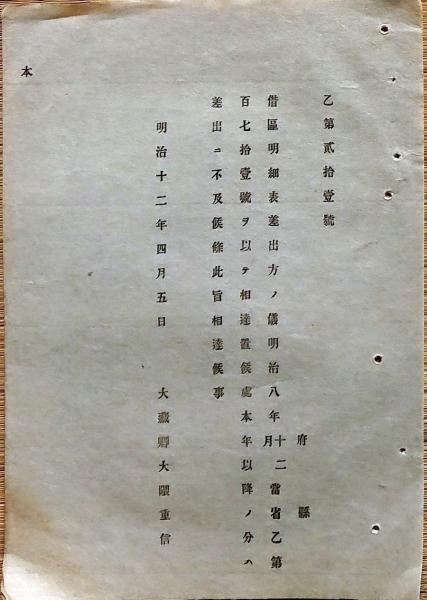 乙第貳拾壹號
府縣
借區明細表差出方ノ儀明治八年十二月當省乙第
百七拾壹號ヲ以テ相達置候處本年以降ノ分ハ
差出ニ不及候條此旨相達候事
明治十二年四月五日　大藏卿大隈重信
本